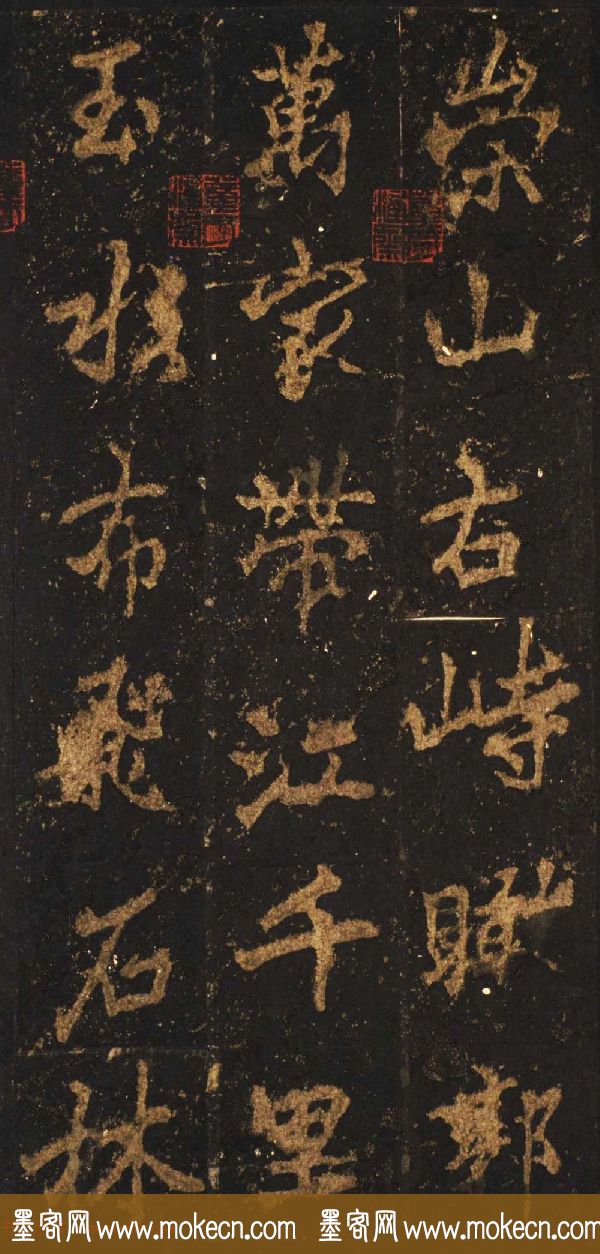 崇山右峙瞰郭
萬家帶江千里
玉 布飛石林
墨客网 www.mokecn.com 墨客网 www.mokecn.com